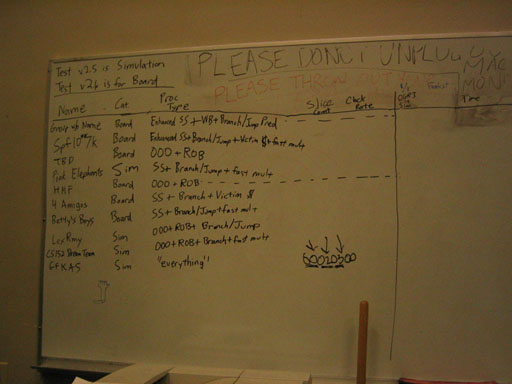 Test v2.5 is Simulation
Test v2.6 is for Board
PLEASE DO NOT UNPLUG
PLEASE THROW OUT
Name Cat. Proc Type Slice Count Clock Rate Time
Group w/o Name Board Enhanced SS + WB + Branch/Jump Pred
Board Enhanced SS + Branch/Jump + Victim $ + fast mult
TBD Board OOO + ROB
Pink Elephants Sim SS + Branch/Jump + fast mult
HHF Board OOO + ROB
4 Amigos Board SS + Branch + Victim $
Betty's Boys Board SS + Branch/Jump + fast mult
LexRoy Sim OOO + ROB + Branch/Jump
CS152 Dream Team Sim OOO + ROB + Branch + fast mult
Sim "everything"!